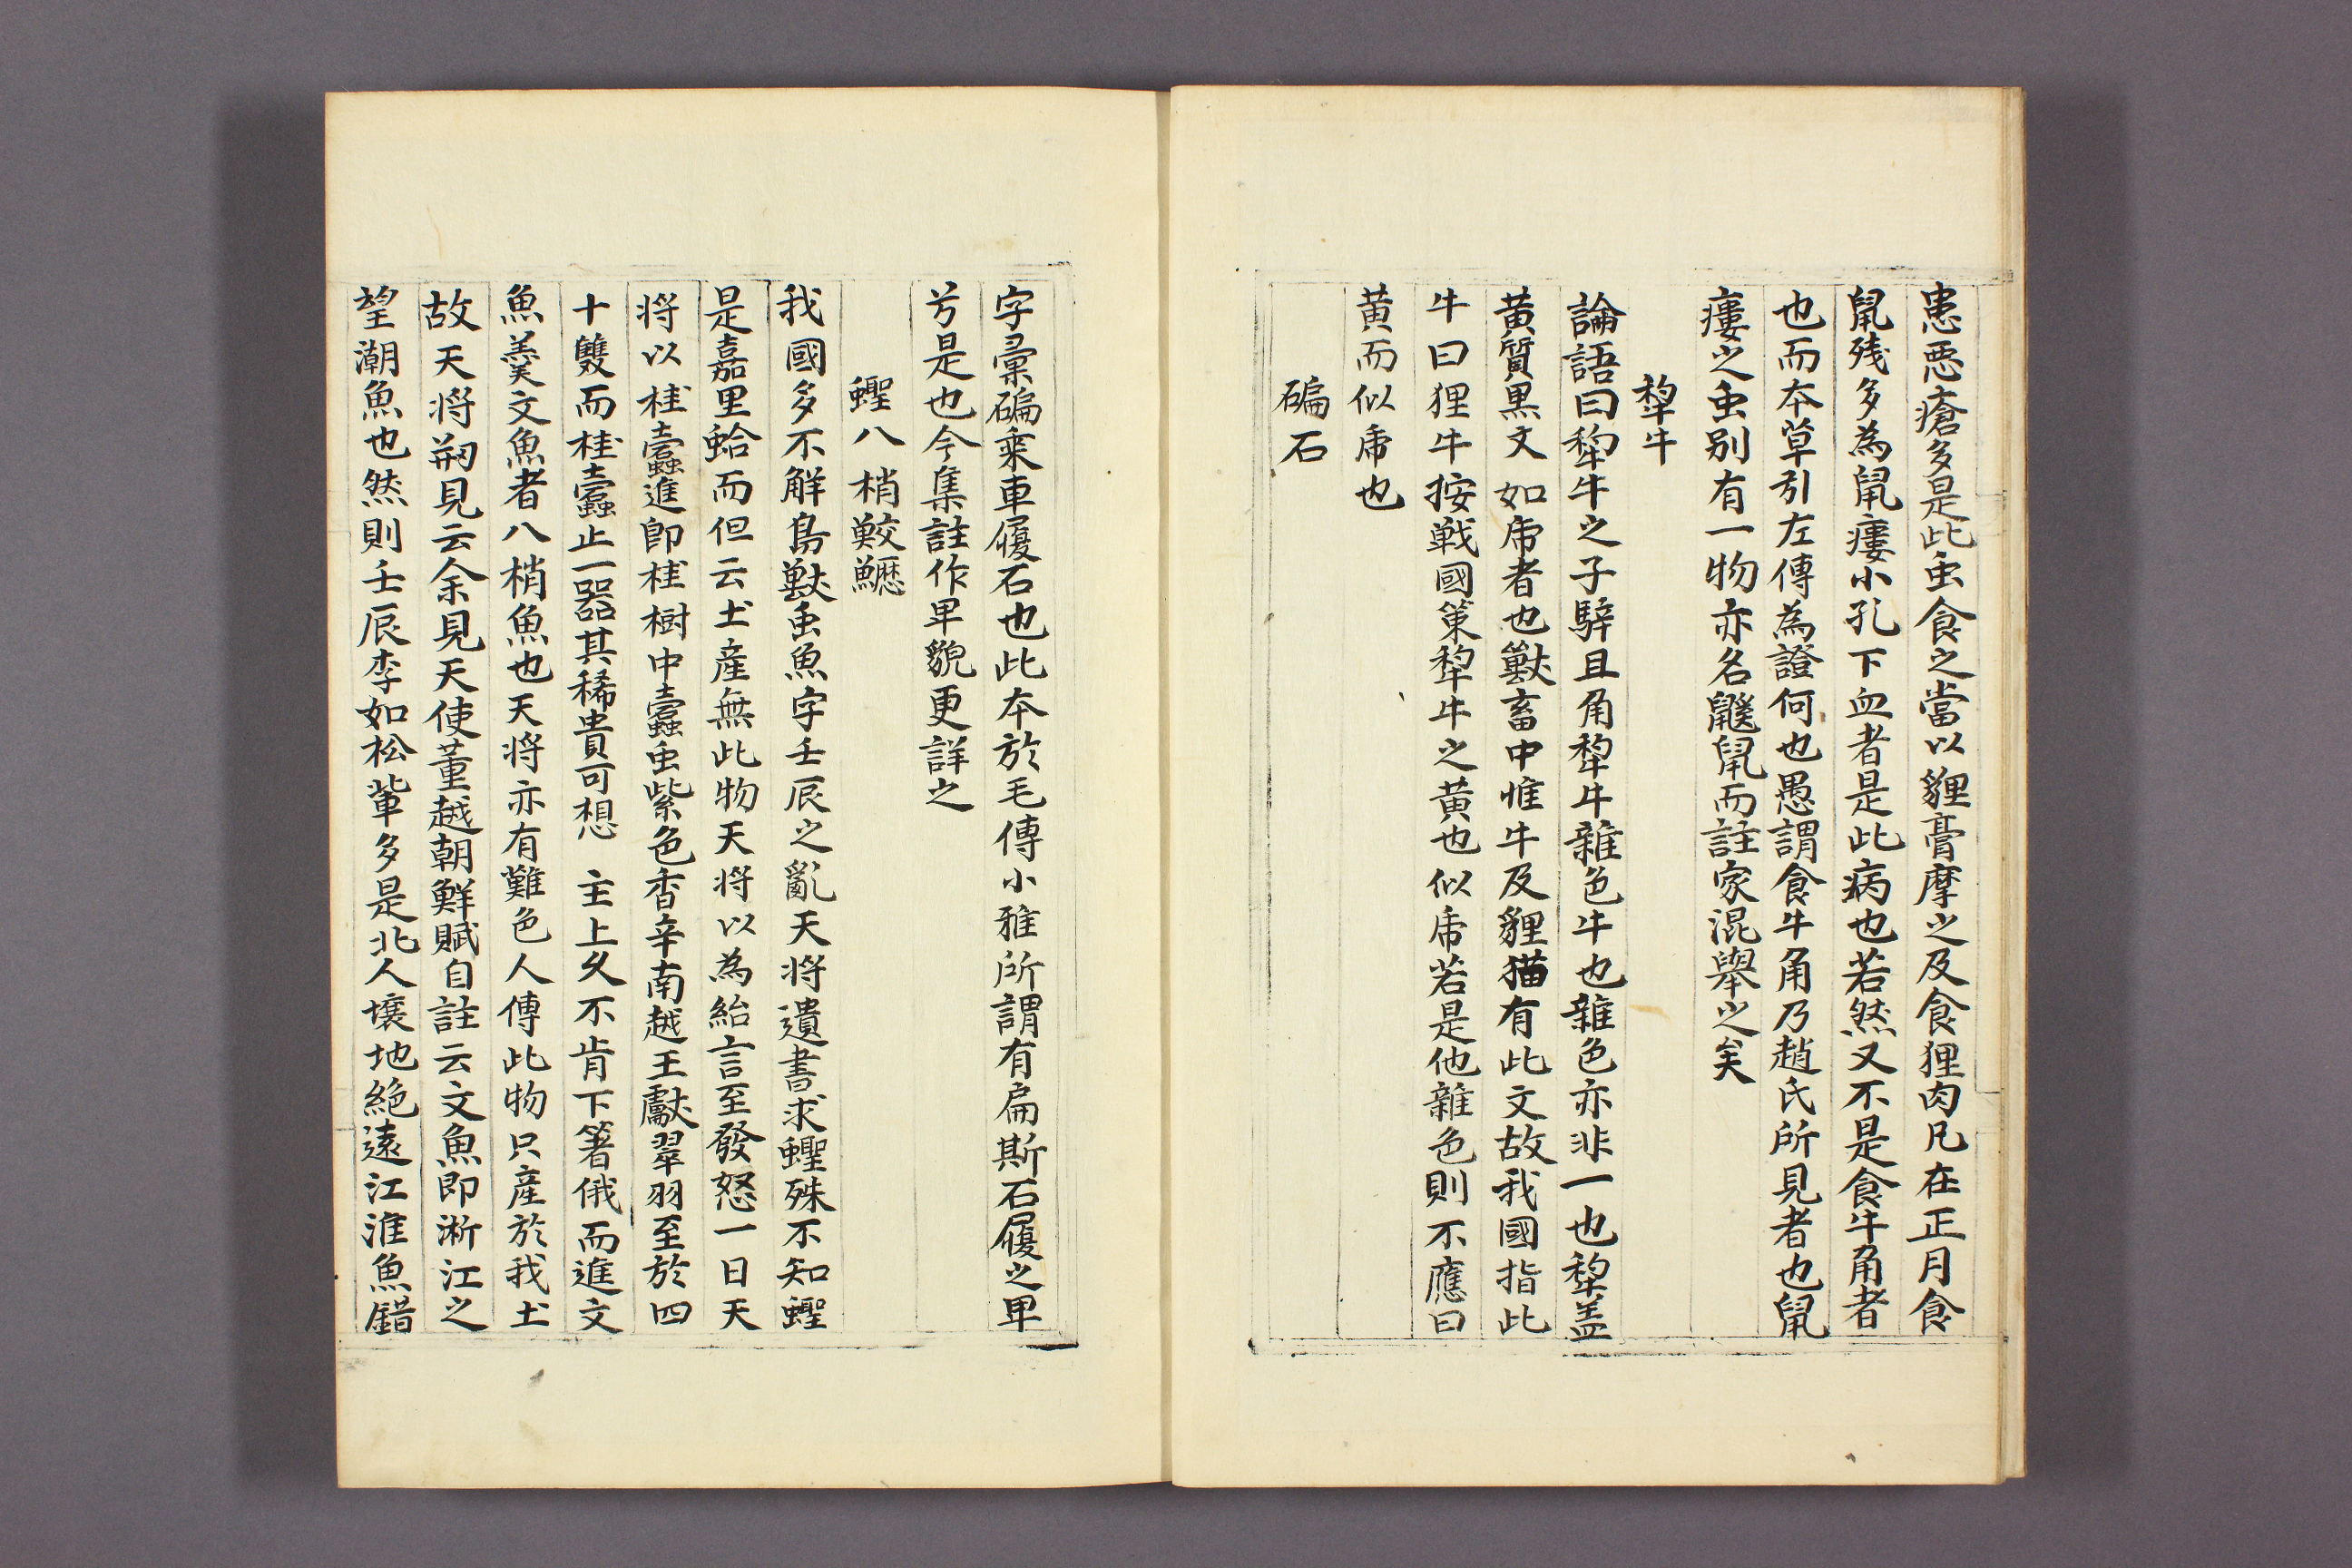 患悪瘡多是此虫食之當以貍膏摩之及食狸肉凡在正月食
鼠残多為鼠瘻小孔下血者是此病也若然又不是食牛角者
也而本草引左傳為證何也愚謂食牛角乃趙氏所見者也鼠
瘻之虫别有一物亦名鼷鼠而註家混擧之矣
犂牛
論語曰犂牛之子騂且角犂牛雜色牛也雜色亦非一也犂盖
黄質黒文如乕者也獸畜中惟牛及貍猫有此文故我國指此
牛曰狸牛按戦國策犂牛之黄也似乕若是他雜色則不應曰
黄而似乕也
碥石
字彙碥乗車履石也此本於毛傳小雅所謂有扁斯石履之卑
兮是也今集註作卑貌更詳之
蟶八梢鮫鱺
我國多不觧鳥獸虫魚字壬辰之亂天将遺書求蟶殊不知蟶
是嘉里蛤而但云土産無此物天将以為紿言至發怒一日天
将以桂蠧進卽桂樹中蠧虫紫色香辛南越王獻翠羽至於四
十雙而桂蠧止一器其稀貴可想 主上久不肯下箸俄而進文
魚羹文魚者八梢魚也天将亦有難色人傳此物只産於我土
故天将刱見云余見天使董越朝鮮賦自註云文魚即淅江之
望潮魚也然則壬辰李如松軰多是北人壤地絶遠江淮魚錯